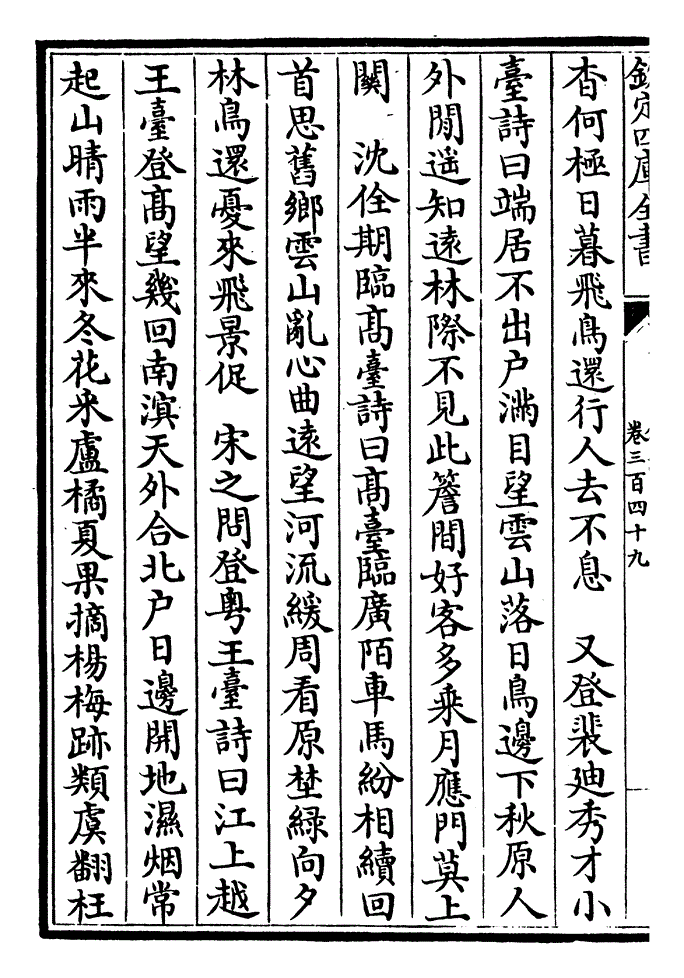 欽定四庫全書
卷三百四十九
杳何極日暮飛鳥還行人去不息　又登裴廸秀才小
臺詩曰端居不出戶滿目望雲山落日鳥邊下秋原人
外閒遥知逺林際不見此簷間好客多乗月應門莫上
闗　沈佺期臨髙臺詩曰髙臺臨廣陌車馬紛相續回
首思舊鄉雲山亂心曲逺望河流緩周看原埜綠向夕
林鳥還憂來飛景促　宋之問登粤王臺詩曰江上越
王臺登髙望幾回南溟天外合北户日邊開地濕烟常
起山晴雨半來冬花采盧橘夏果摘楊梅跡類虞翻枉